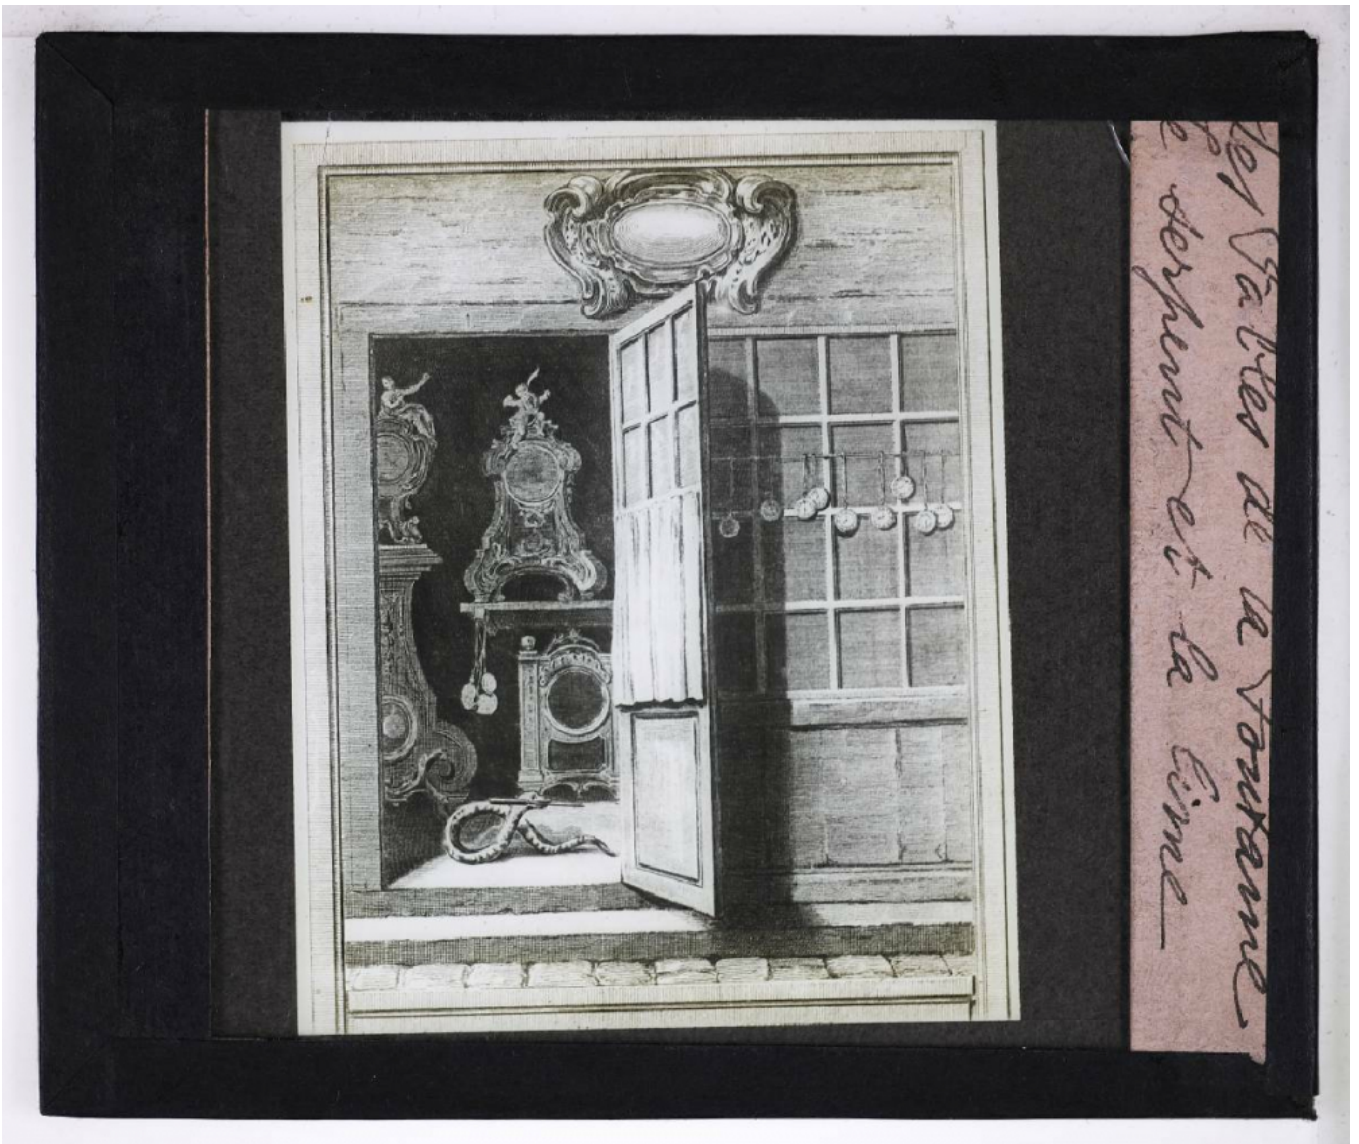 des Fables de la Fontaine
le serpent et la lime